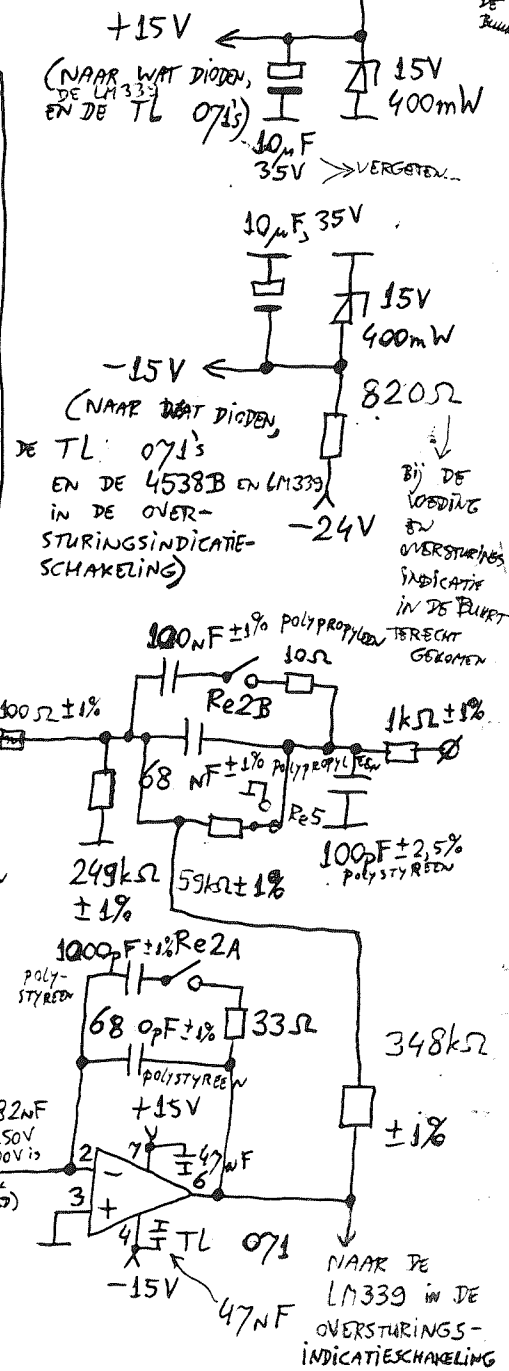 +15V
(NAAR WAT DIODEN,
DE LM339
EN DE TL 071's)
15V
400mW
10µF
35V
VERGETEN...
DE
10µF, 35V
15V
400mW
-15V
(NAAR WAT DIODEN,
DE TL 071's
EN DE 4538B EN LM339
IN DE OVER-
STURINGSINDICATIE-
SCHAKELING)
820Ω
-24V
Bij DE
VOEDING
EN
OVERSTURINGS
INDICATIE
IN DE BUURT
TERECHT
GEKOMEN
100NF ±1% POLYPROPYLEEN
10Ω
Re2B
100Ω ±1%
1kΩ ±1%
68 NF ±1% POLYPROPYLEEN
Re5
100pF ±2,5%
POLYSTYREEN
249kΩ
±1%
59kΩ ±1%
1000pF ±1% Re2A
POLY-
STYREEN
680pF ±1%
POLYSTYREEN
33Ω
348kΩ
±1%
82NF
+15V
47NF
2
7
6
3
4
-
+
TL 071
-15V
47NF
NAAR DE
LM339 in DE
OVERSTURINGS-
INDICATIESCHAKELING